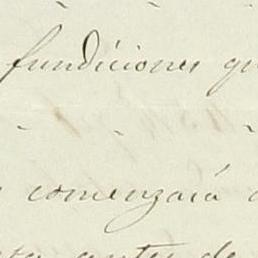 fundiciones qu
comenzará
antes de